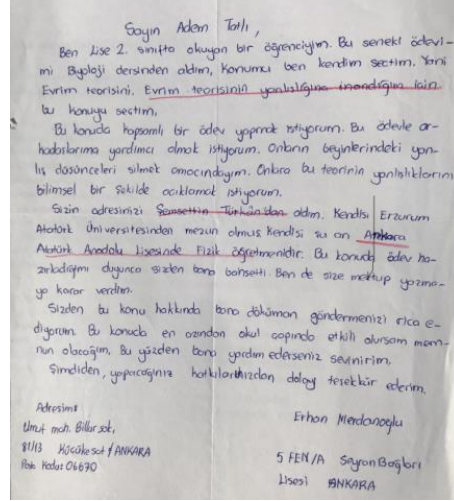 Sayın Adem Tatlı,
Ben Lise 2. sınıfta okuyan bir öğrenciyim. Bu seneki ödevi-
mi Biyoloji dersinden aldım, Konumu ben kendim seçtim. Yani
Evrim teorisini. Evrim teorisinin yanlışlığına inandığım için
bu konuyu seçtim.
Bu konuda kapsamlı bir ödev yapmak istiyorum. Bu ödevle ar-
kadaşlarıma yardımcı olmak istiyorum. Onların beyinlerindeki yan-
lış düşünceleri silmek amacındayım. Onlara bu teorinin yanlışlıklarını
bilimsel bir şekilde açıklamak istiyorum.
Sizin adresinizi Şemsettin Türkan'dan aldım. Kendisi Erzurum
Atatürk Üniversitesinden mezun olmuş. Kendisi şu an Ankara
Atatürk Anadolu Lisesinde Fizik öğretmenidir. Bu konuda ödev ha-
zırladığımı duyunca sizden bana bahsetti. Ben de size mektup yazma-
ya karar verdim.
Sizden bu konu hakkında bana döküman göndermenizi rica e-
diyorum. Bu konuda en azından okul çapında etkili olursam mem-
nun olacağım. Bu yüzden bana yardım ederseniz sevinirim.
Şimdiden, yapacağınız katkılarınızdan dolayı teşekkür ederim.
Adresim:
Umut mah. Billur sok.
81/13 Küçükesat / ANKARA
Posta Kodu: 06670
Erhan Merdanoğlu
5 FEN/A Seyran Bağları
Lisesi ANKARA